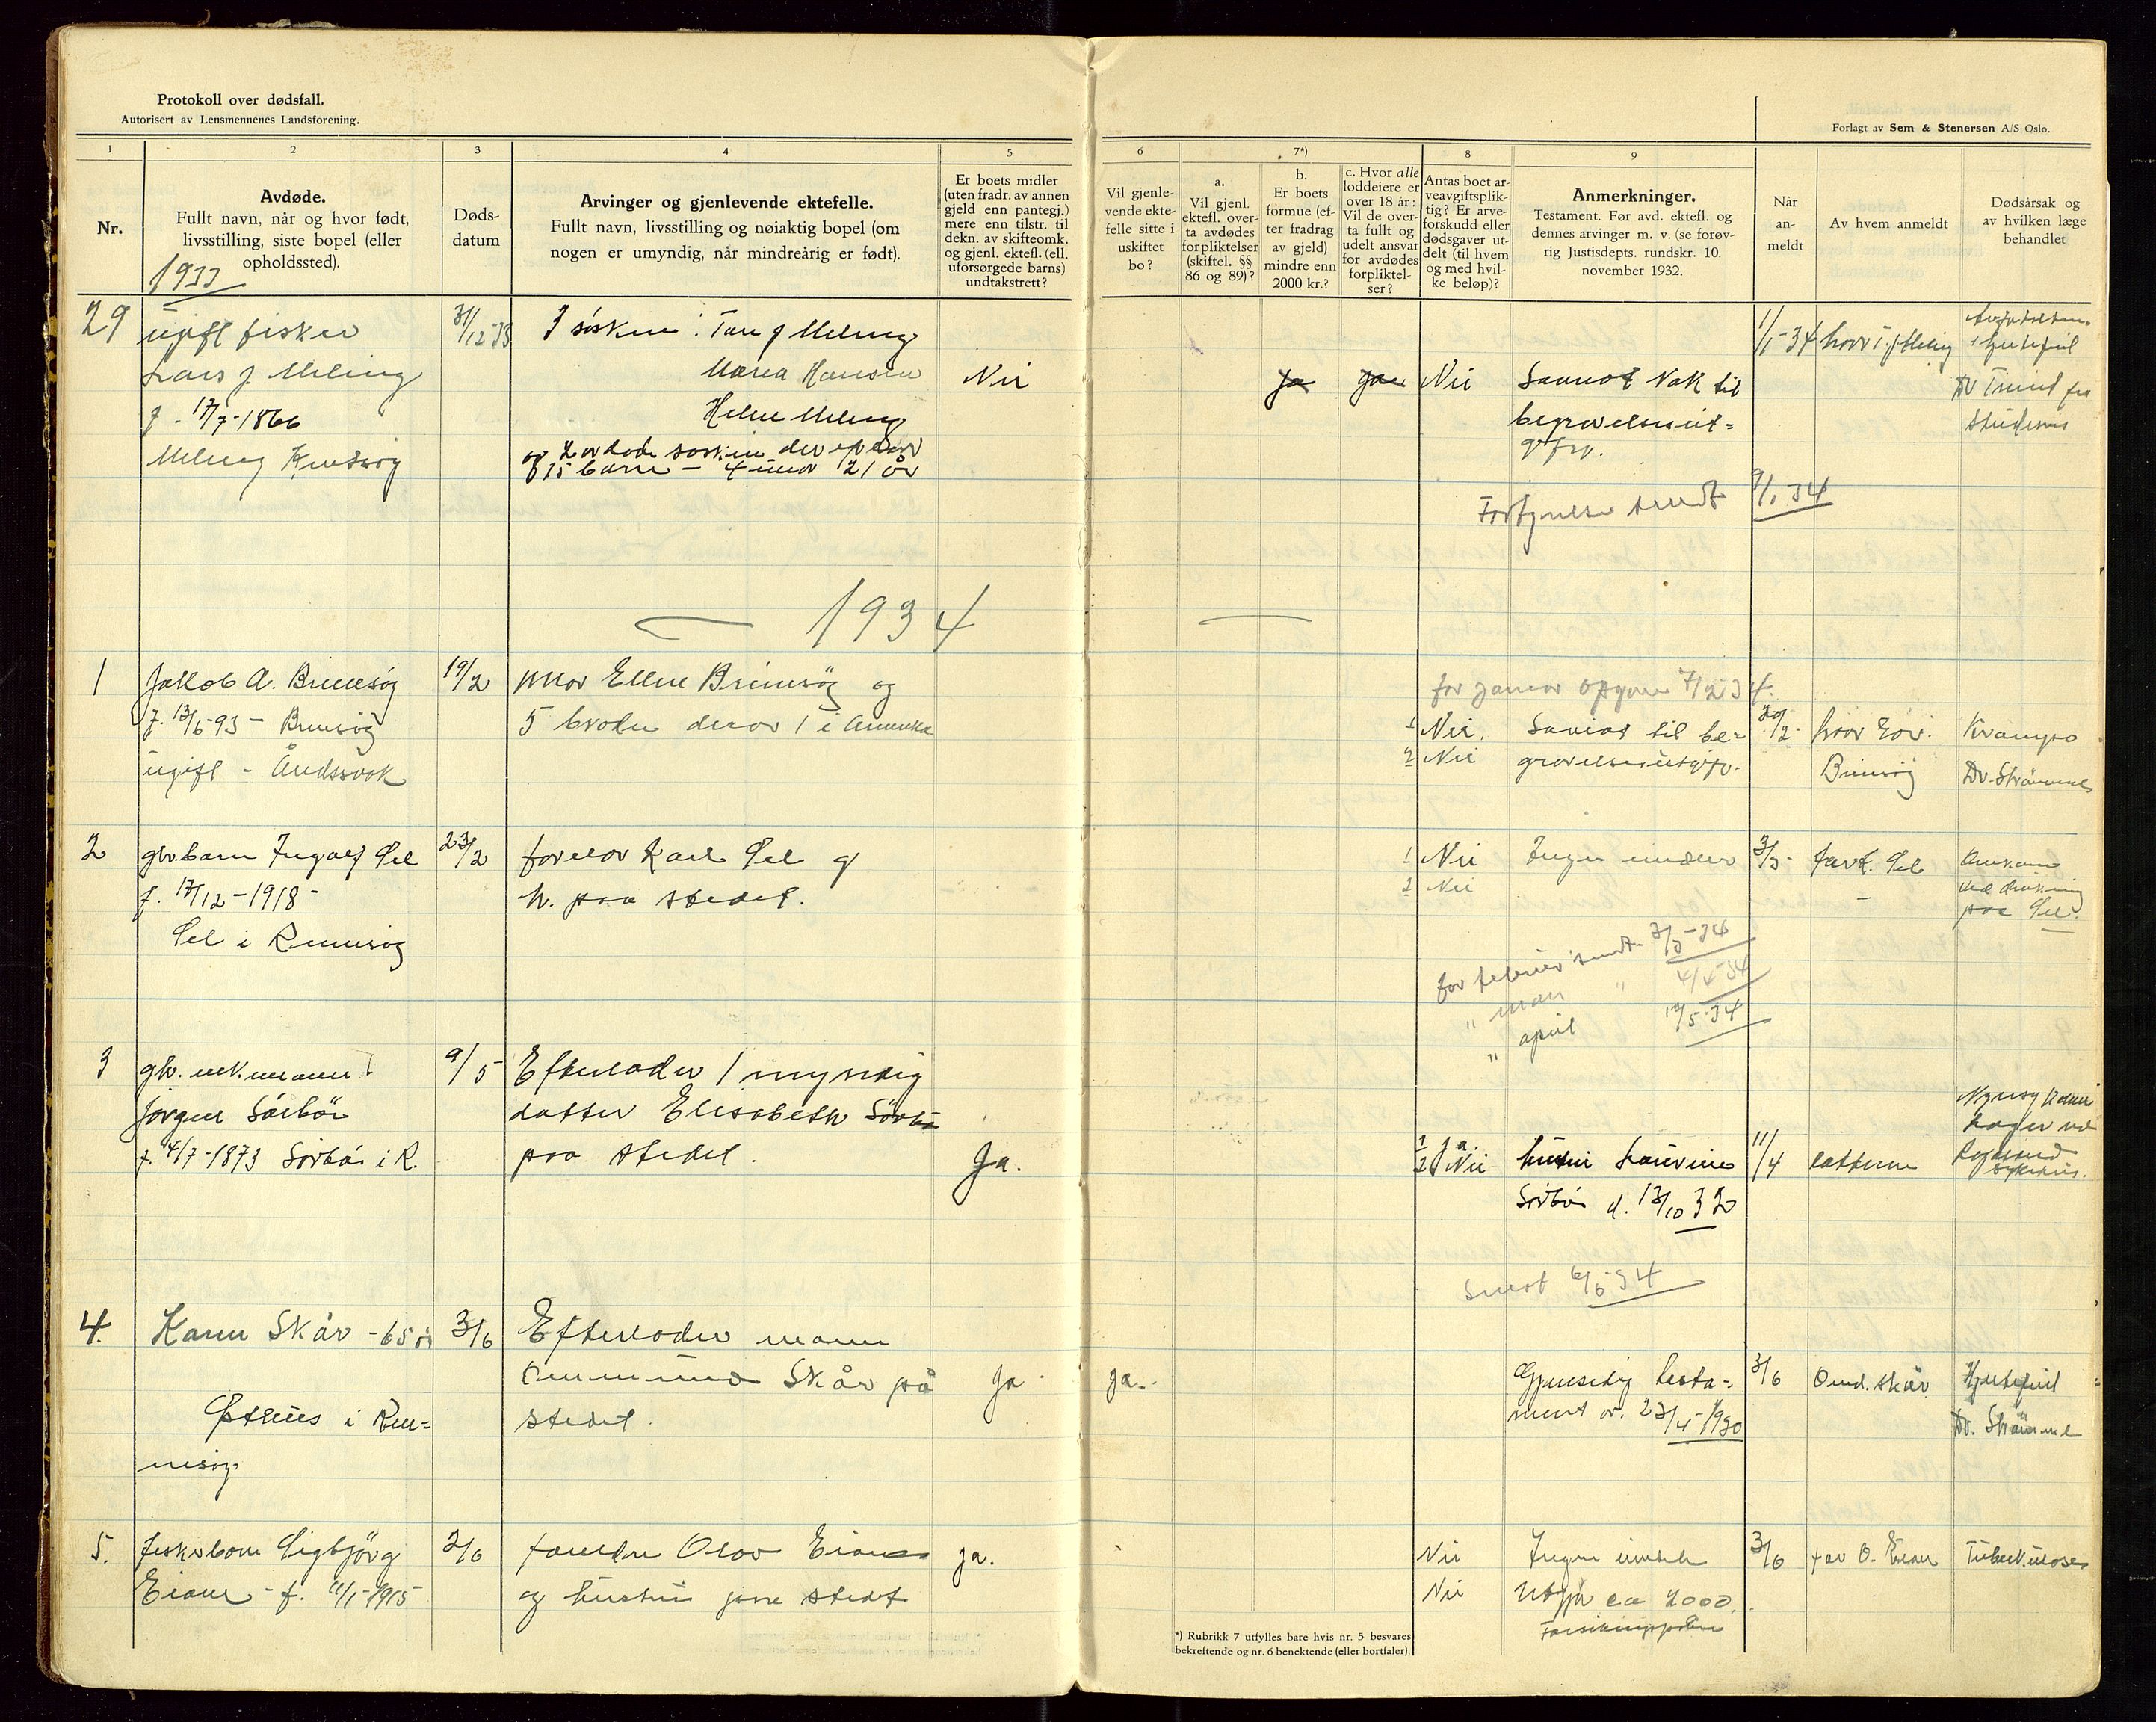 Protokoll over dødsfall.
Autorisert av Lensmennenes Landsforening.
Forlagt av Sem & Stenersen A/S Oslo.
1
2
3
4
5
6
7*)
8
9
Nr.
Avdøde.
Fullt navn, når og hvor født,
livsstilling, siste bopel (eller
opholdssted).
1933
Døds-
datum
Arvinger og gjenlevende ektefelle.
Fullt navn, livsstilling og nøiaktig bopel (om
nogen er umyndig, når mindreårig er født).
Er boets midler
(uten fradr. av annen
gjeld enn pantegj.)
mere enn tilstr. til
dekn. av skifteomk.
og gjenl. ektefl. (ell.
uforsørgede barns)
undtakstrett?
Vil gjenle-
vende ekte-
felle sitte i
uskiftet
bo?
a.
Vil gjenl.
ektefl. over-
ta avdødes
forpliktelser
(skiftel. §§
86 og 89)?
b.
Er boets
formue (ef-
ter fradrag
av gjeld)
mindre enn
2000 kr.?
c. Hvor alle
loddeiere er
over 18 år:
Vil de over-
ta fullt og
udelt ansvar
for avdødes
forpliktel-
ser?
Antas boet ar-
veavgiftsplik-
tig? Er arve-
forskudd eller
dødsgaver ut-
delt (til hvem
og med hvil-
ke beløp)?
Anmerkninger.
Testament. Før avd. ektefl. og
dennes arvinger m. v. (se forøv-
rig Justisdepts. rundskr. 10.
november 1932.
Når
an-
meldt
Av hvem anmeldt
Dødsårsak og
av hvilken læge
behandlet
29
ugift fisker
Lars J Meling
f. 17/7-1866
Meling
31/12-33
3 søsken: Tore J Meling
Maren Hansen
Helene Meling
og 2 avdøde
15 barn - 4 under 21 år
Nei
Ja
Ja
Nei
Savnet nok til
begravelsesut=
gifter.
1/1-34
Hjertefeil
Dr
sendt 9/1 34
1934
1
Jakob A. Brimsøy
f. 13/6-93 - Brimsøy
ugift - Åndssvak
19/2
Mor Elene Brimsøy og
5 brødre derav 1 i Amerika
for januar opgave 7/2 34.
1 Nei.
2 Nei
til be=
gravelsesutgifter.
20/2
bror
Brimsøy
Krampe
Dr. Strømme
2
gbr.barn Ingolf Sel
f. 17/12-1918-
Sel i Rennesøy
23/2
forelder Karl Sel og
h. paa stedet.
1 Nei
2 Nei
Ingen midler
3/3-
far K. Sel
ved drukning
paa Sel.
for februar sendt 3/3-34
" mars " 4/4-34
" april 12/5-34
3
gbr. enkemann
Jørgen Sørbø
f. 4/7-1873 Sørbø i R.
9/5
Efterlader 1 myndig
datter Elisabeth Sørbø
paa stedet.
Ja.
1 Ja
2 Nei
hustru Laurine
Sørbø d. 13/10 32
11/4
datteren
Rogaland
sykehus.
Sendt 6/6-34
4.
Karen Skår - 65 år
Østhus i Ren=
nesøy
3/6
Efterlader mann
Ommund Skår på
stedet.
Ja
Ja.
Gjensidig testa=
ment av 23/4-1930
3/6
Omd. Skår
Hjertefeil
Dr. Strømme
5.
fiskerbarn Sigbjørg
Eiane - f. 11/1-1915
2/6
foreldre Olav Eiane
og hustru paa stedet
Ja.
Nei
Nei
Ingen midler
Utgjør ca 2000.
3/6
far O. Eiane
Tuberkulose
*) Rubrikk 7 utfylles bare hvis nr. 5 besvares
bekreftende og nr. 6 benektende (eller bortfaler).